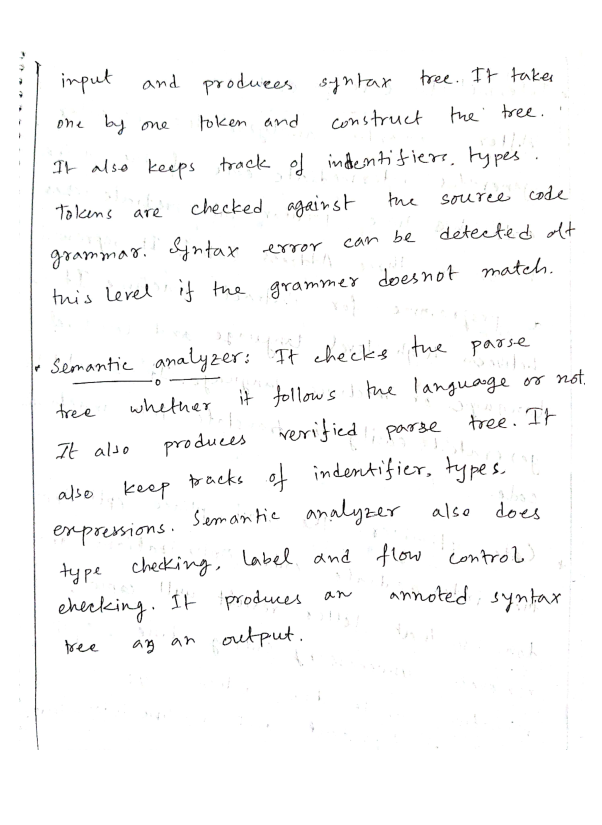 input and produces syntax tree. It takes
one by one token and construct the tree.
It also keeps track of indentifiers, types.
Tokens are checked against the source code
grammar. Syntax error can be detected at
this Level if the grammer doesnot match.
• Semantic analyzer: It checks the parse
tree whether it follows the language or not.
It also produces verified parse tree. It
also keep tracks of indentifier, types,
expressions. Semantic analyzer also does
type checking, Label and flow control
checking. It produces an annoted syntax
tree as an output.